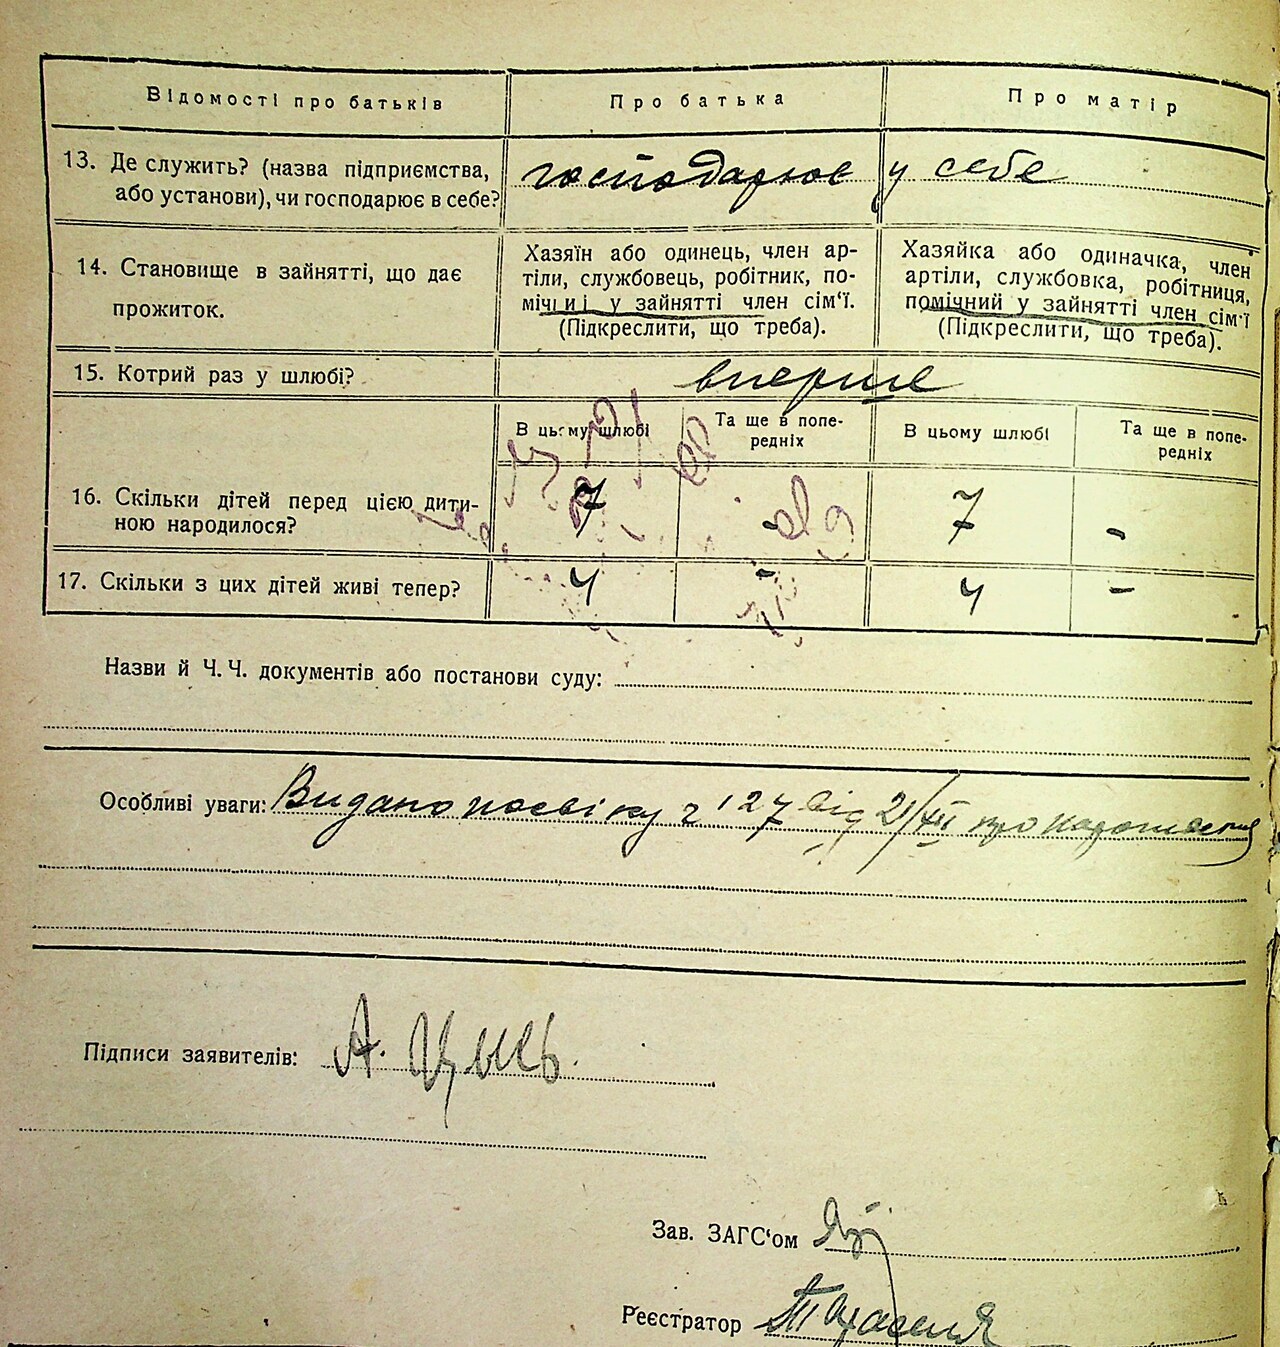 Відомості про батьків Про батька Про матір
13. Де служить? (назва підприємства, або установи), чи господарює в себе?
господарює у себе
14. Становище в зайнятті, що дає прожиток.
Хазяїн або одинець, член ар-
тілі, службовець, робітник, по-
мічний у зайнятті член сім'ї.
(Підкреслити, що треба).
Хазяйка або одиначка, член
артілі, службовка, робітниця,
помічний у зайнятті член сім'ї
(Підкреслити, що треба).
15. Котрий раз у шлюбі? вперше
В цьому шлюбі
Та ще в попе-
редніх
В цьому шлюбі
Та ще в попе-
редніх
16. Скільки дітей перед цією дити-
ною народилося?
7 - 7 -
17. Скільки з цих дітей живі тепер? 4 - 4 -
Назви й Ч. Ч. документів або постанови суду:
Особливі уваги: Видано посвідку ч 127 від 21/XII про народження
Підписи заявителів: А. Цысь.
Зав. ЗАГС'ом
Реєстратор